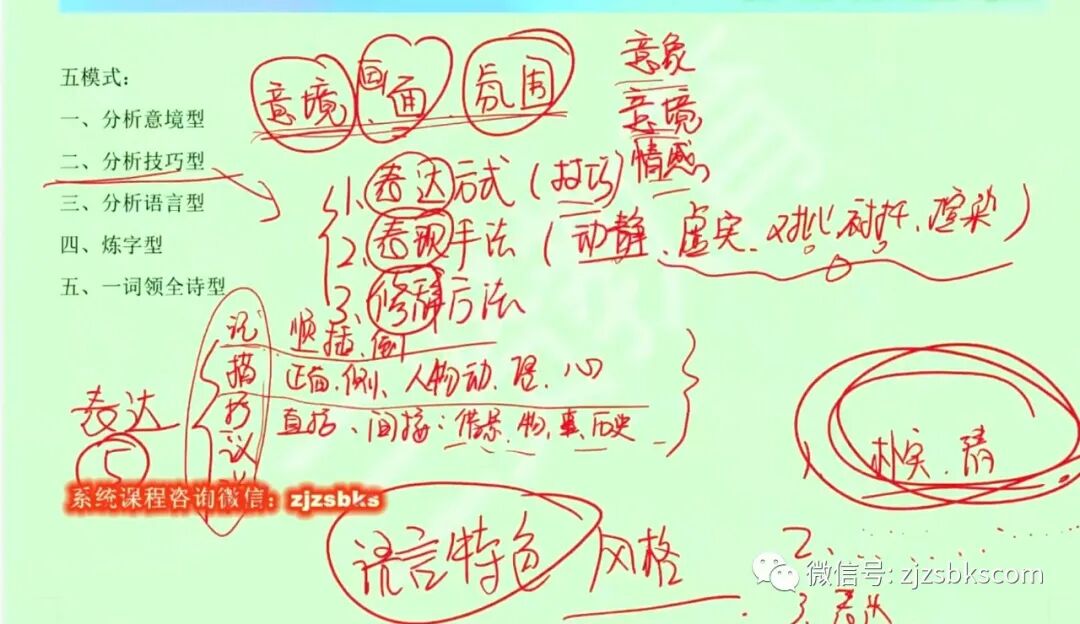 五模式：
一、分析意境型
二、分析技巧型
三、分析语言型
四、炼字型
五、一词领全诗型
意境 画面 氛围
意象
意境
情感
1、表达方式（技巧）
2、表现手法（动静、虚实、对比、衬托、渲染）
3、修辞方法
表达
5
记 顺、插、倒
描 正面、侧、人物动、语、心
抒 直抒、间接：借景、物、事、历史
议
系统课程咨询微信：zjzsbks
语言特色 风格
朴实、清
2、
3、
微信号: zjzsbkscom